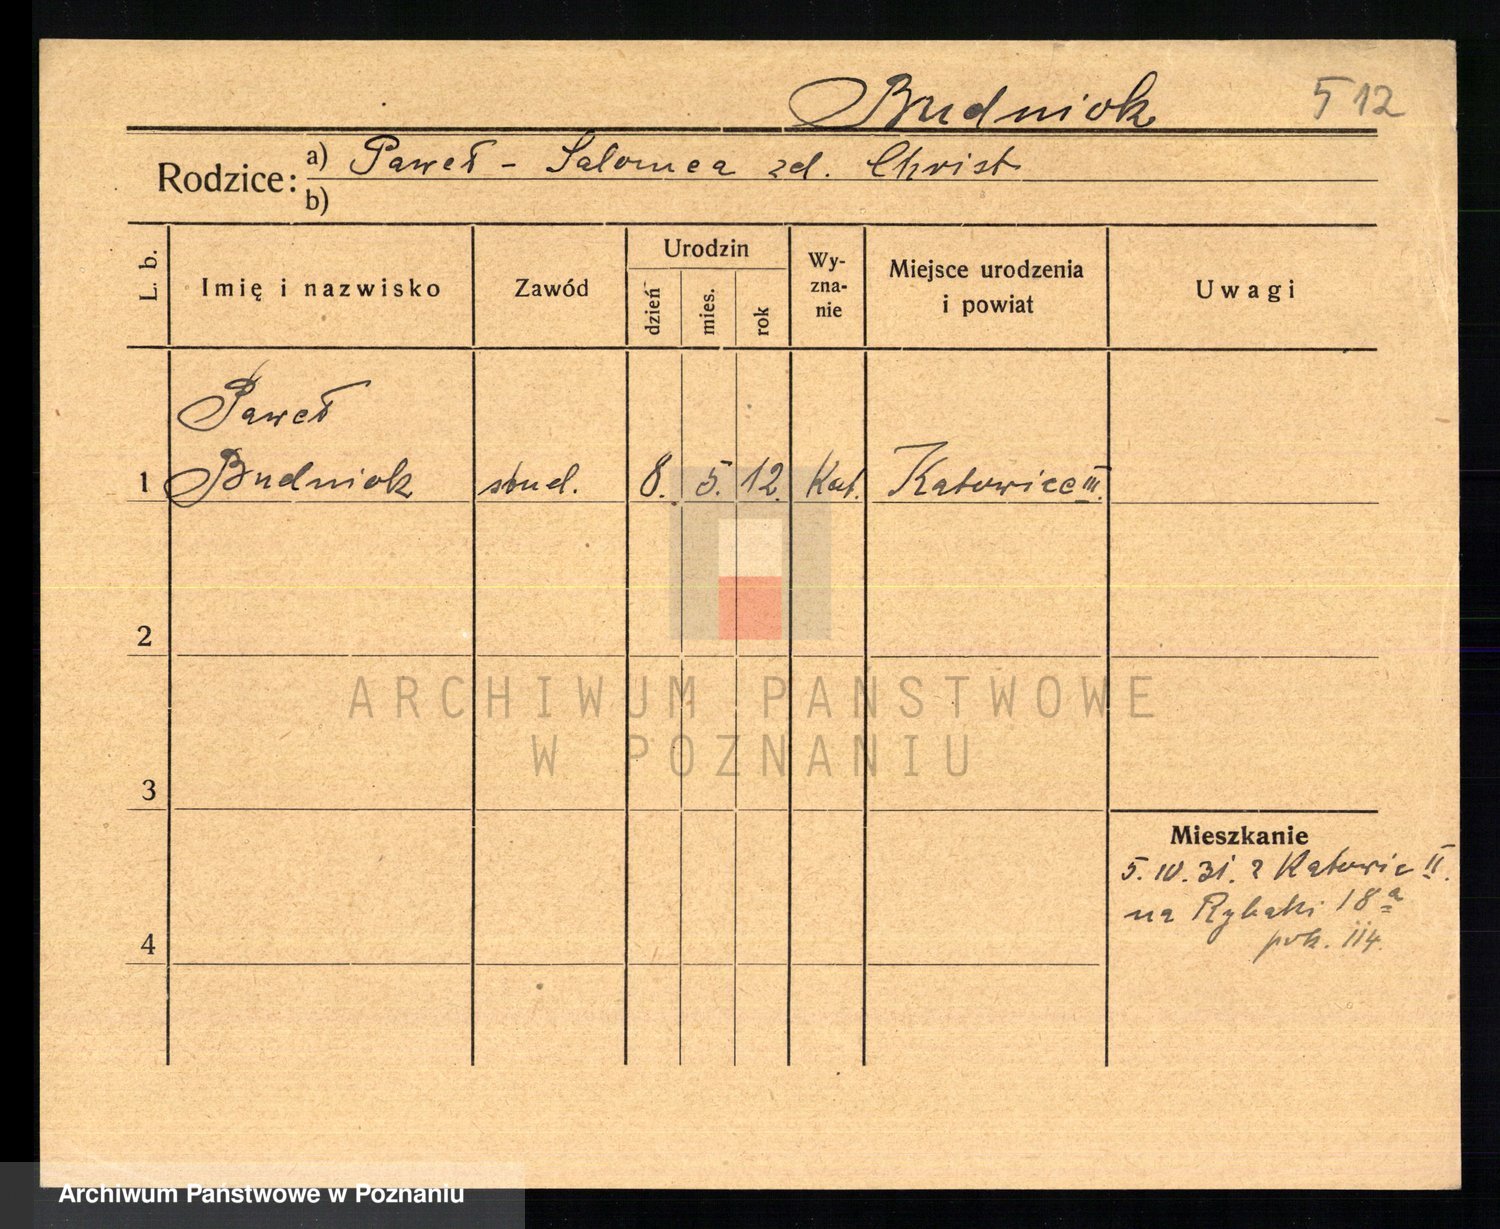 Budniok 512
Rodzice: a) Paweł - Salomea zd. Christ
b)
L. b. Imię i nazwisko Zawód Urodzin dzień mies. rok Wyznanie Miejsce urodzenia i powiat Uwagi
Paweł
1 Budniok stud. 8. 5. 12. Kat. Katowice III.
2
ARCHIWUM PAŃSTWOWE
W POZNANIU
3
Mieszkanie
5. 10. 31. z Katowic II.
na Rybaki 18a
4 pok. 114.
Archiwum Państwowe w Poznaniu